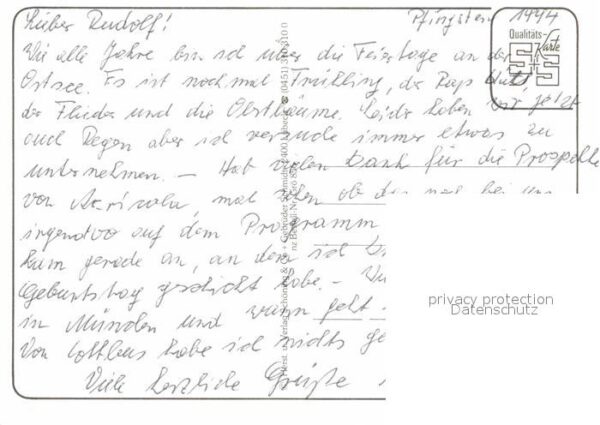 Lieber Rudolf! Pfingsten 1994
Wie alle Jahre bin ich über die Feiertage an der
Ostsee. Es ist noch mal Frühling, der Raps blüht,
der Flieder und die Obstbäume. Leider haben wir jetzt
auch Regen aber ich versuche immer etwas zu
unternehmen. – Hab vielen Dank für die Prospekte
von mal sehen ob das noch bei uns
irgendwo auf dem Programm
kam gerade an, an dem ich
Geburtstag habe. –
in München und wann geht
Von Cottbus habe ich nichts
Viele herzliche Grüße
Qualitäts-
Karte
S+S
privacy protection
Datenschutz